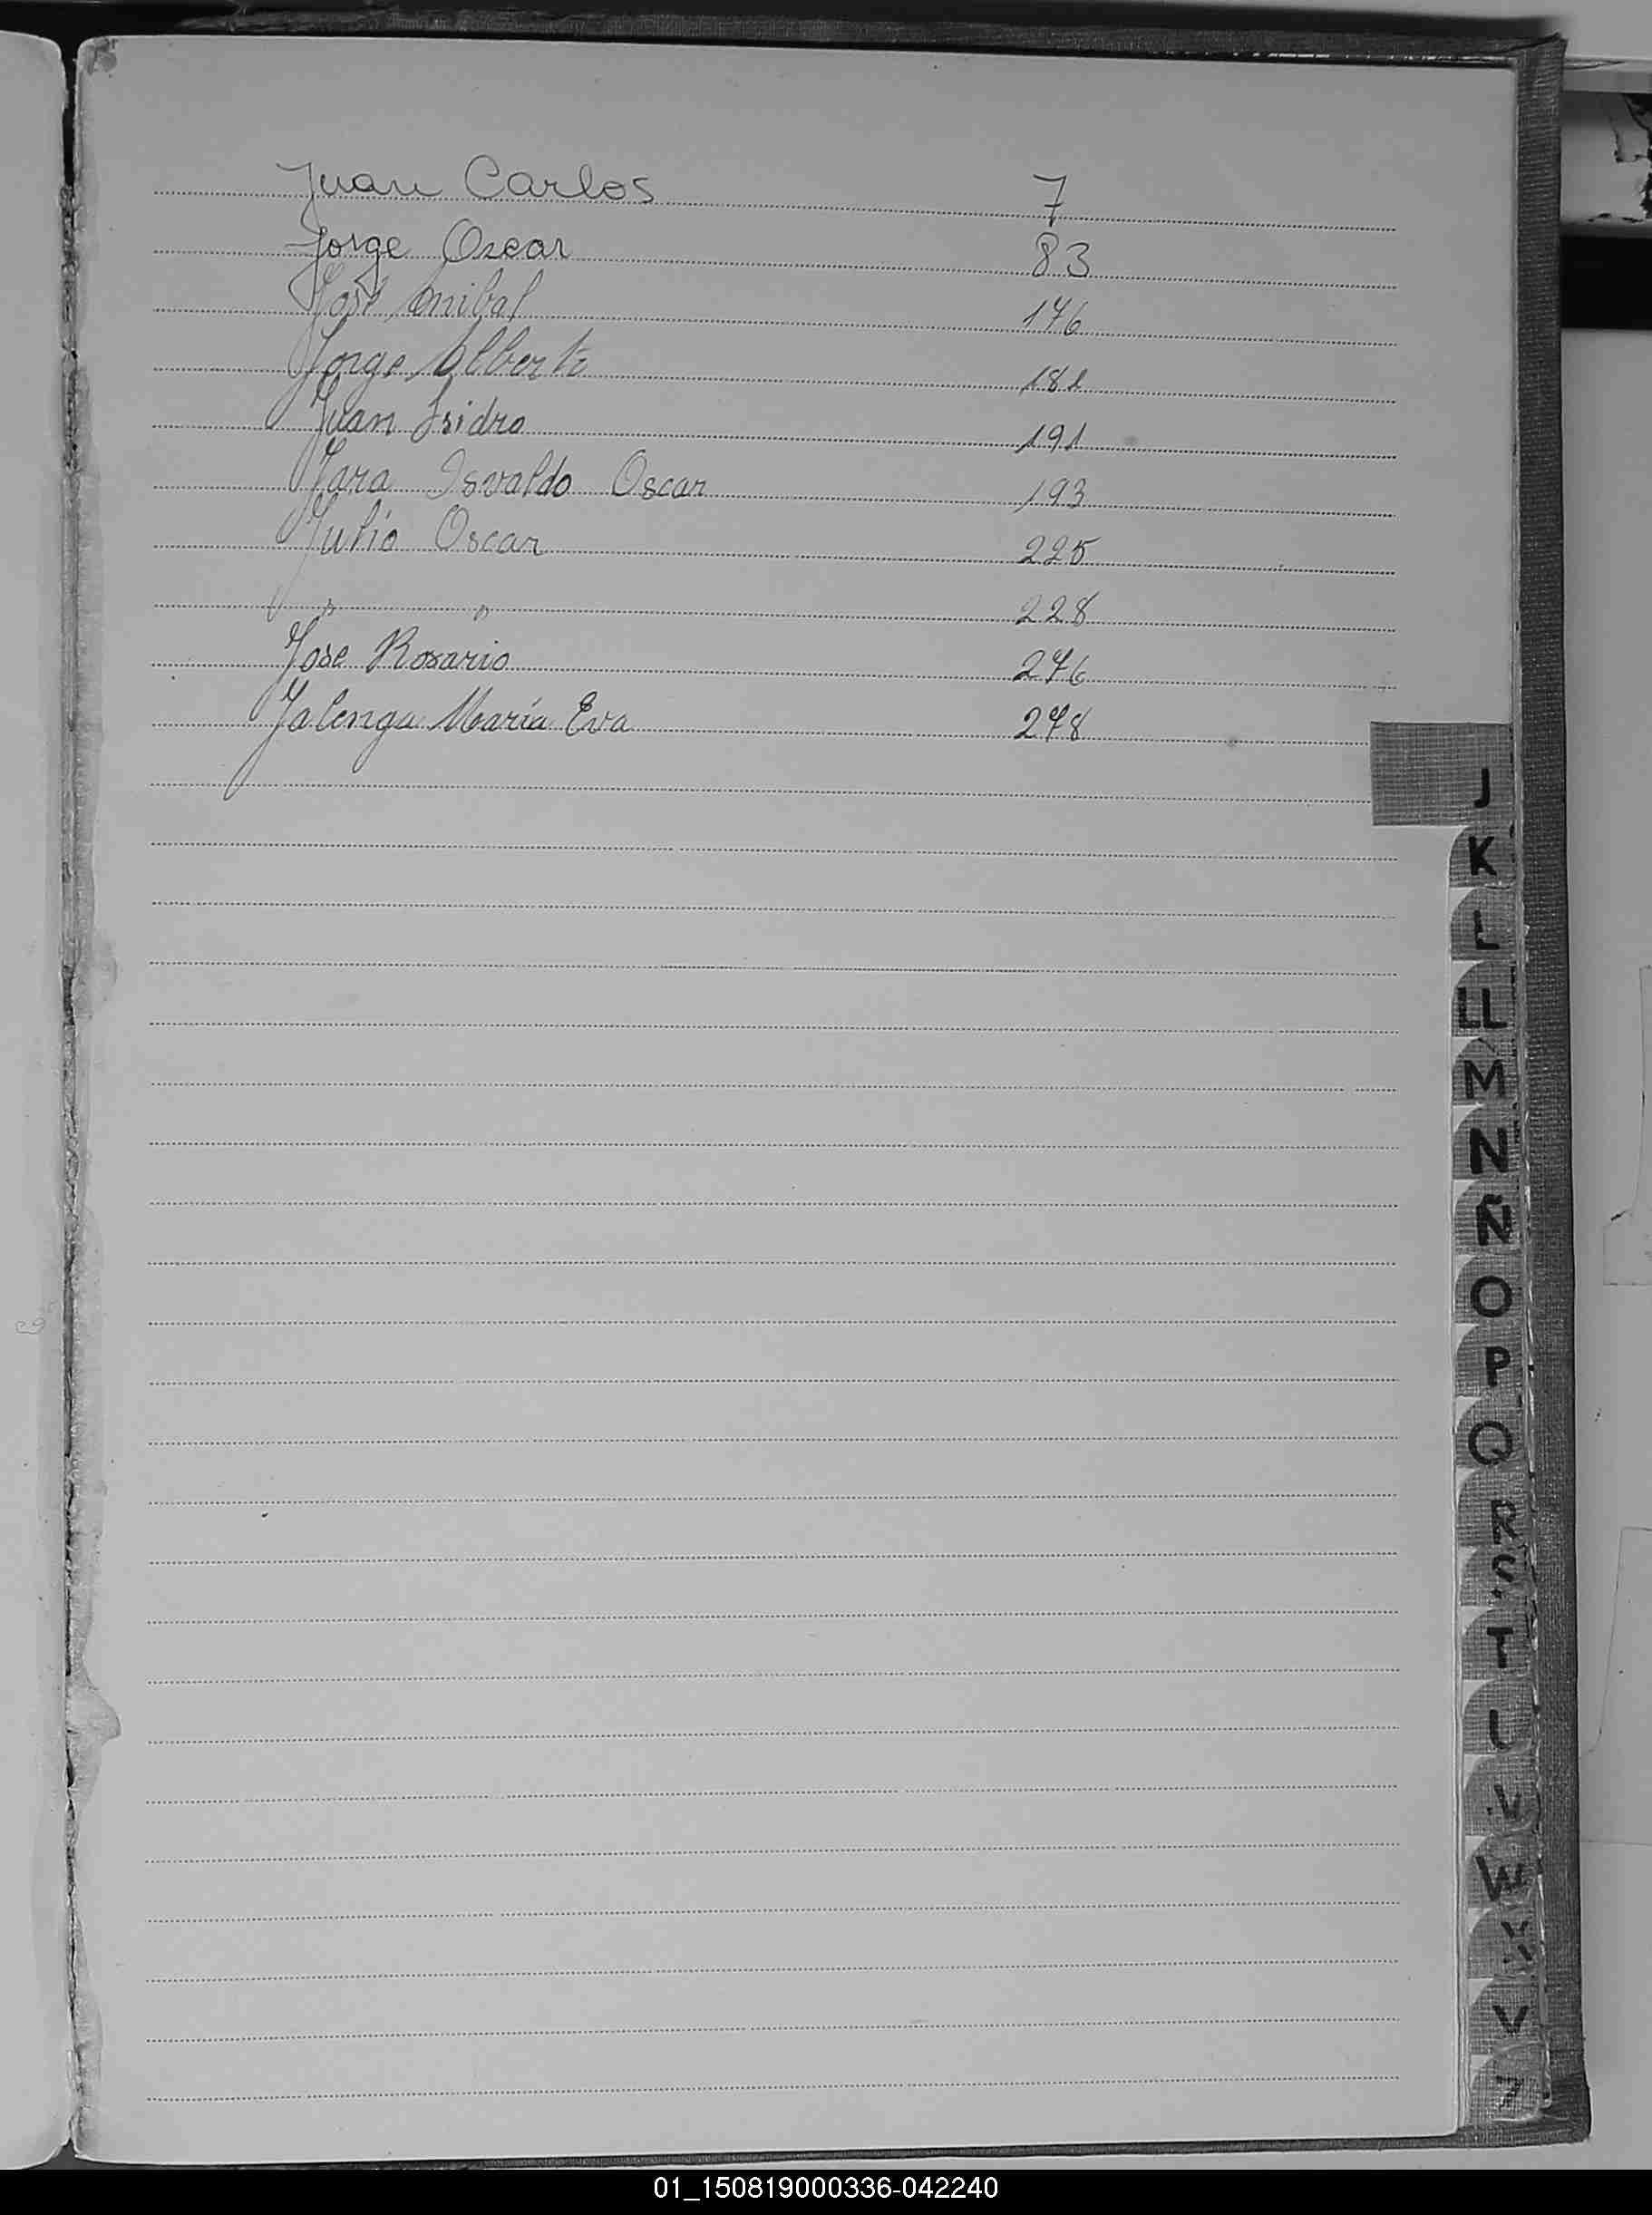 Juan Carlos 7
Jorge Oscar 83
José Anibal 176
Jorge Alberto 182
Juan Isidro 191
Jara Osvaldo Oscar 193
Julio Oscar 225
" " 228
José Rosario 276
Jalenga María Eva 278
J
K
L
LL
M
N
Ñ
O
P
Q
R
S
T
U
V
W
X
Y
Z
01_150819000336-042240